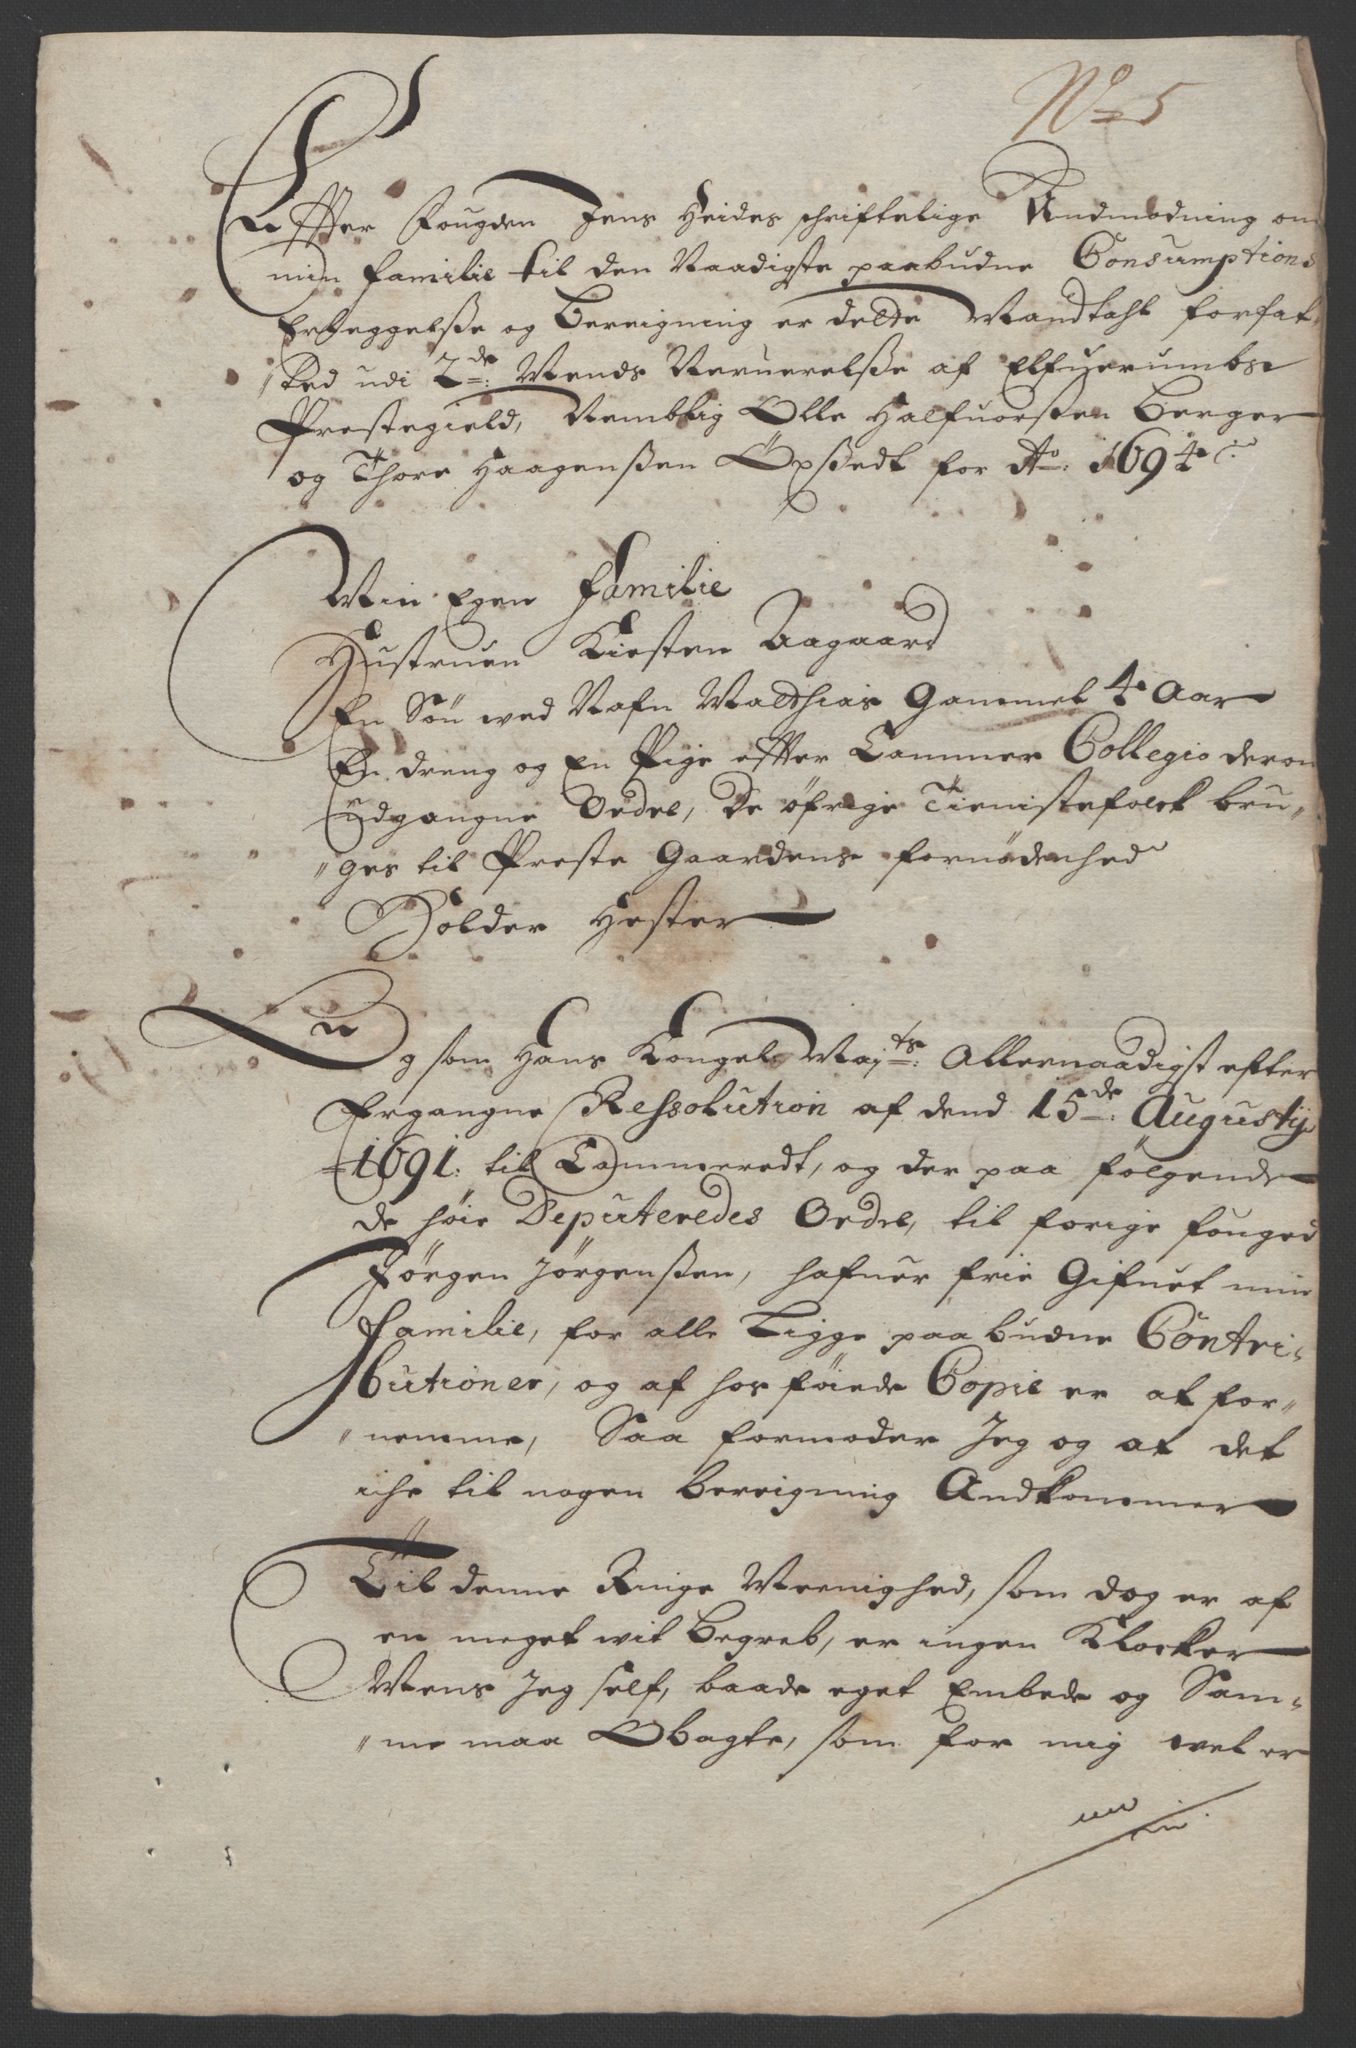 No 5
Effter Fougden Jens Heides schriftelige Andmodning om
min familie til den Naadigste paabudne Consumptions
Erleggelsße og Bereigning er dette Mandtahl forfat-
"ted udi 2de: Mends Neruerelsße af Elfuerumbs
Prestegield, Nemblig Olle Halfuorsßen Berger
og Thore Haagensßen Opsßedt for Ao: 1694
Min Egen Familie
Hustruen Kirsten Aagaard
En Søn wed Nafn Matthias Gammel 4 Aar
En dreng og En Pige effter Cammer Collegio derom
udgangne Ordre, De øfrige Tienistefolck bru-
"ges til Preste Gaardens fornødenhed
Holder Hester
Og som Hans Kongel: Maj:ts: Allernaadigst efter
Ergangne Ressolution af dend 15de: Augusty
1691: til Cammeredt, og der paa følgende
de høie Deputeredes Ordre, til forige fouged
Jørgen Jørgensßen, hafuer frie Gifuet min
Familie, for alle Ligge paabudne Contri-
butioner, og af hos føiede Copie er at for-
"nemme, Saa formoder Jeg og at det
iche til nogen bereigning Andkommer
Til denne Ringe Meenighed, som dog er af
en meget wit begreb, er ingen Klocker
Mens Jeg self, baade eget Embede og Sam-
"me maa Obagte, som for mig vel er